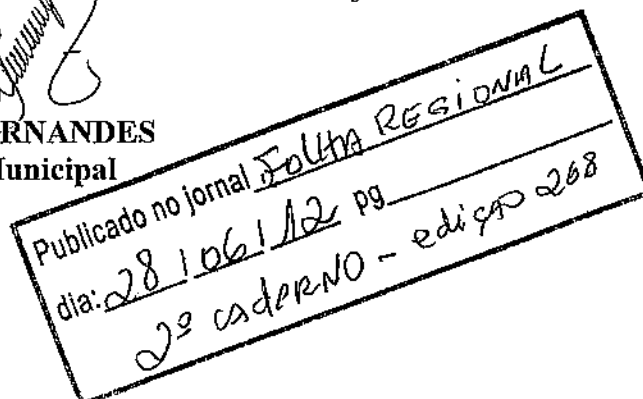 RNANDES
Municipal
Publicado no jornal FOLHA REGIONAL
dia: 28/06/12 pg
2º CADERNO - edição 268